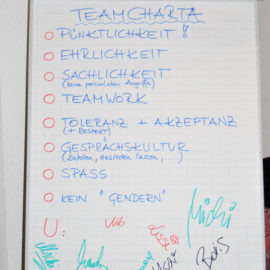 TEAMCHARTA
PÜNKTLICHKEIT!
EHRLICHKEIT
SACHLICHKEIT
(keine persönlichen Angriffe)
TEAMWORK
TOLERANZ + AKZEPTANZ
(+ RESPEKT)
GESPRÄCHSKULTUR
(zuhören, ausreden lassen, )
SPASS
KEIN "GENDERN"
U:
Michi